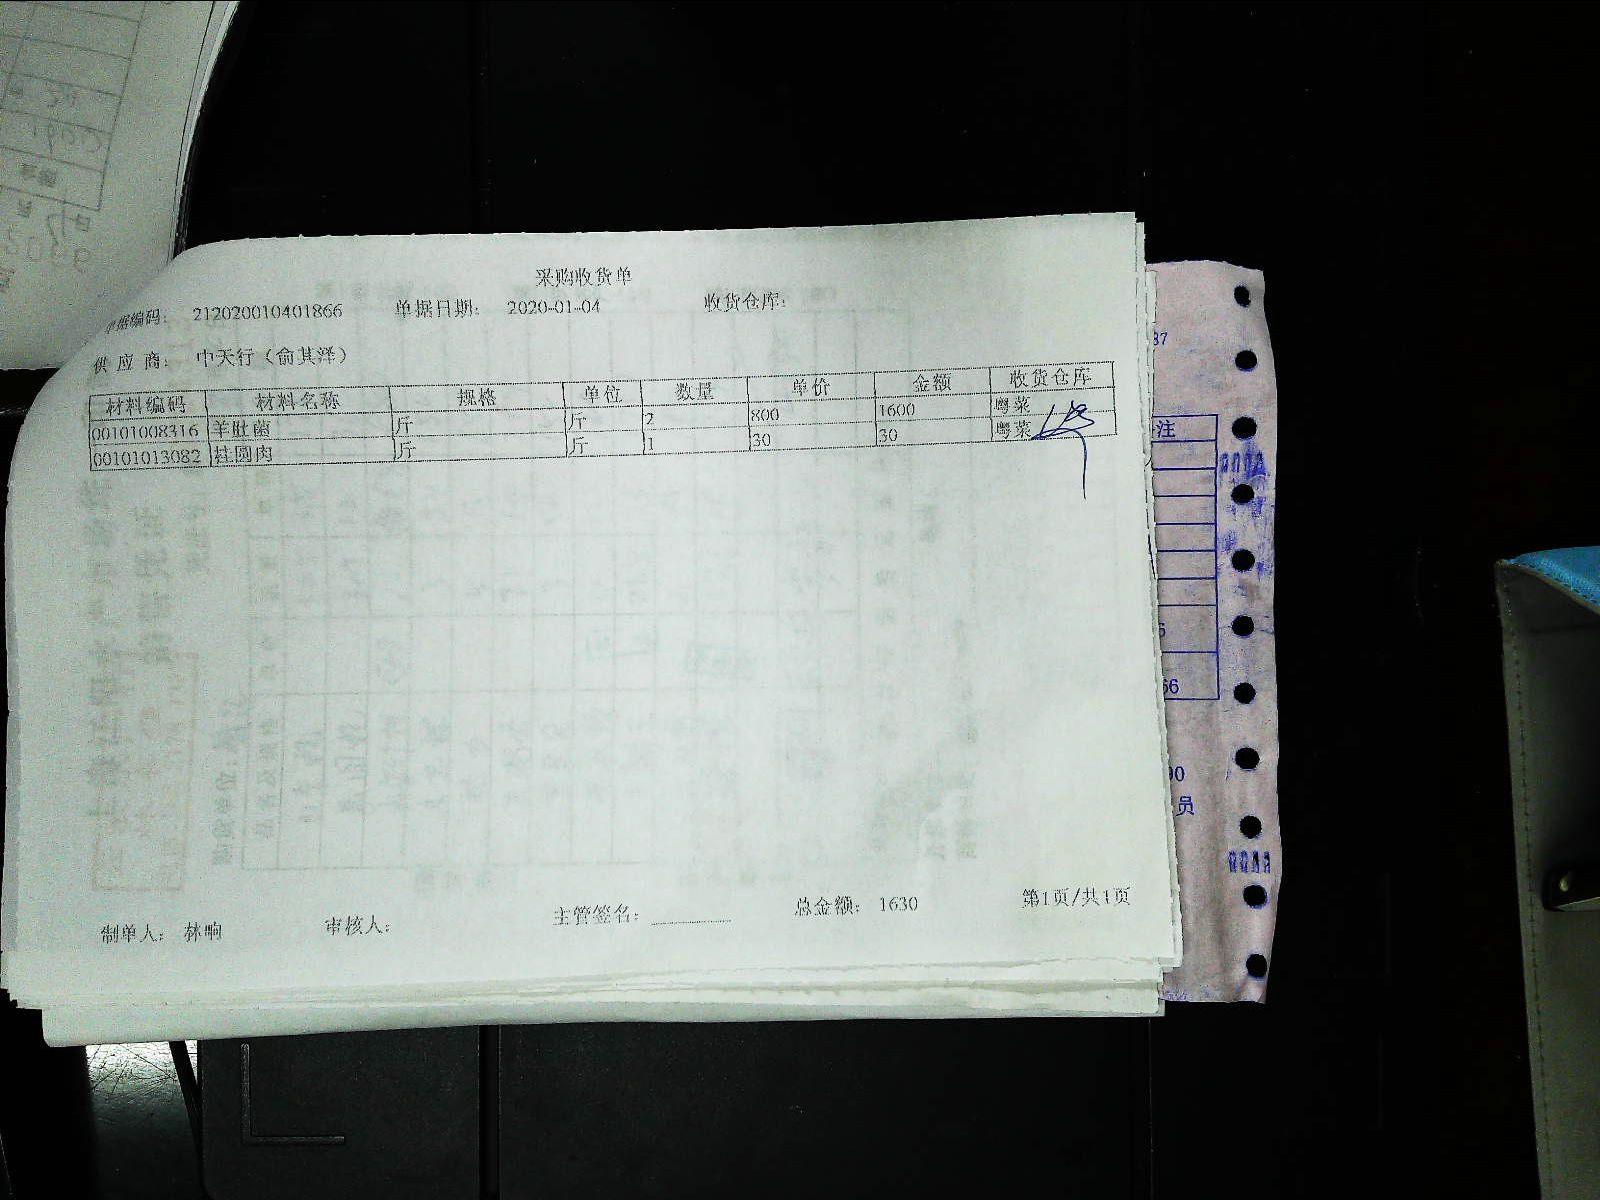 采购收货单
单据编码： 212020010401866 单据日期： 2020-01-04 收货仓库：
供应商： 中天行（俞其泽）
材料编码 材料名称 规格 单位 数量 单价 金额 收货仓库
00101008316 羊肚菌 斤 斤 2 800 1600 粤菜
00101013082 桂圆肉 斤 斤 1 30 30 粤菜
制单人： 林响 审核人： 主管签名： 总金额： 1630 第1页/共1页
37
注
66
90
员